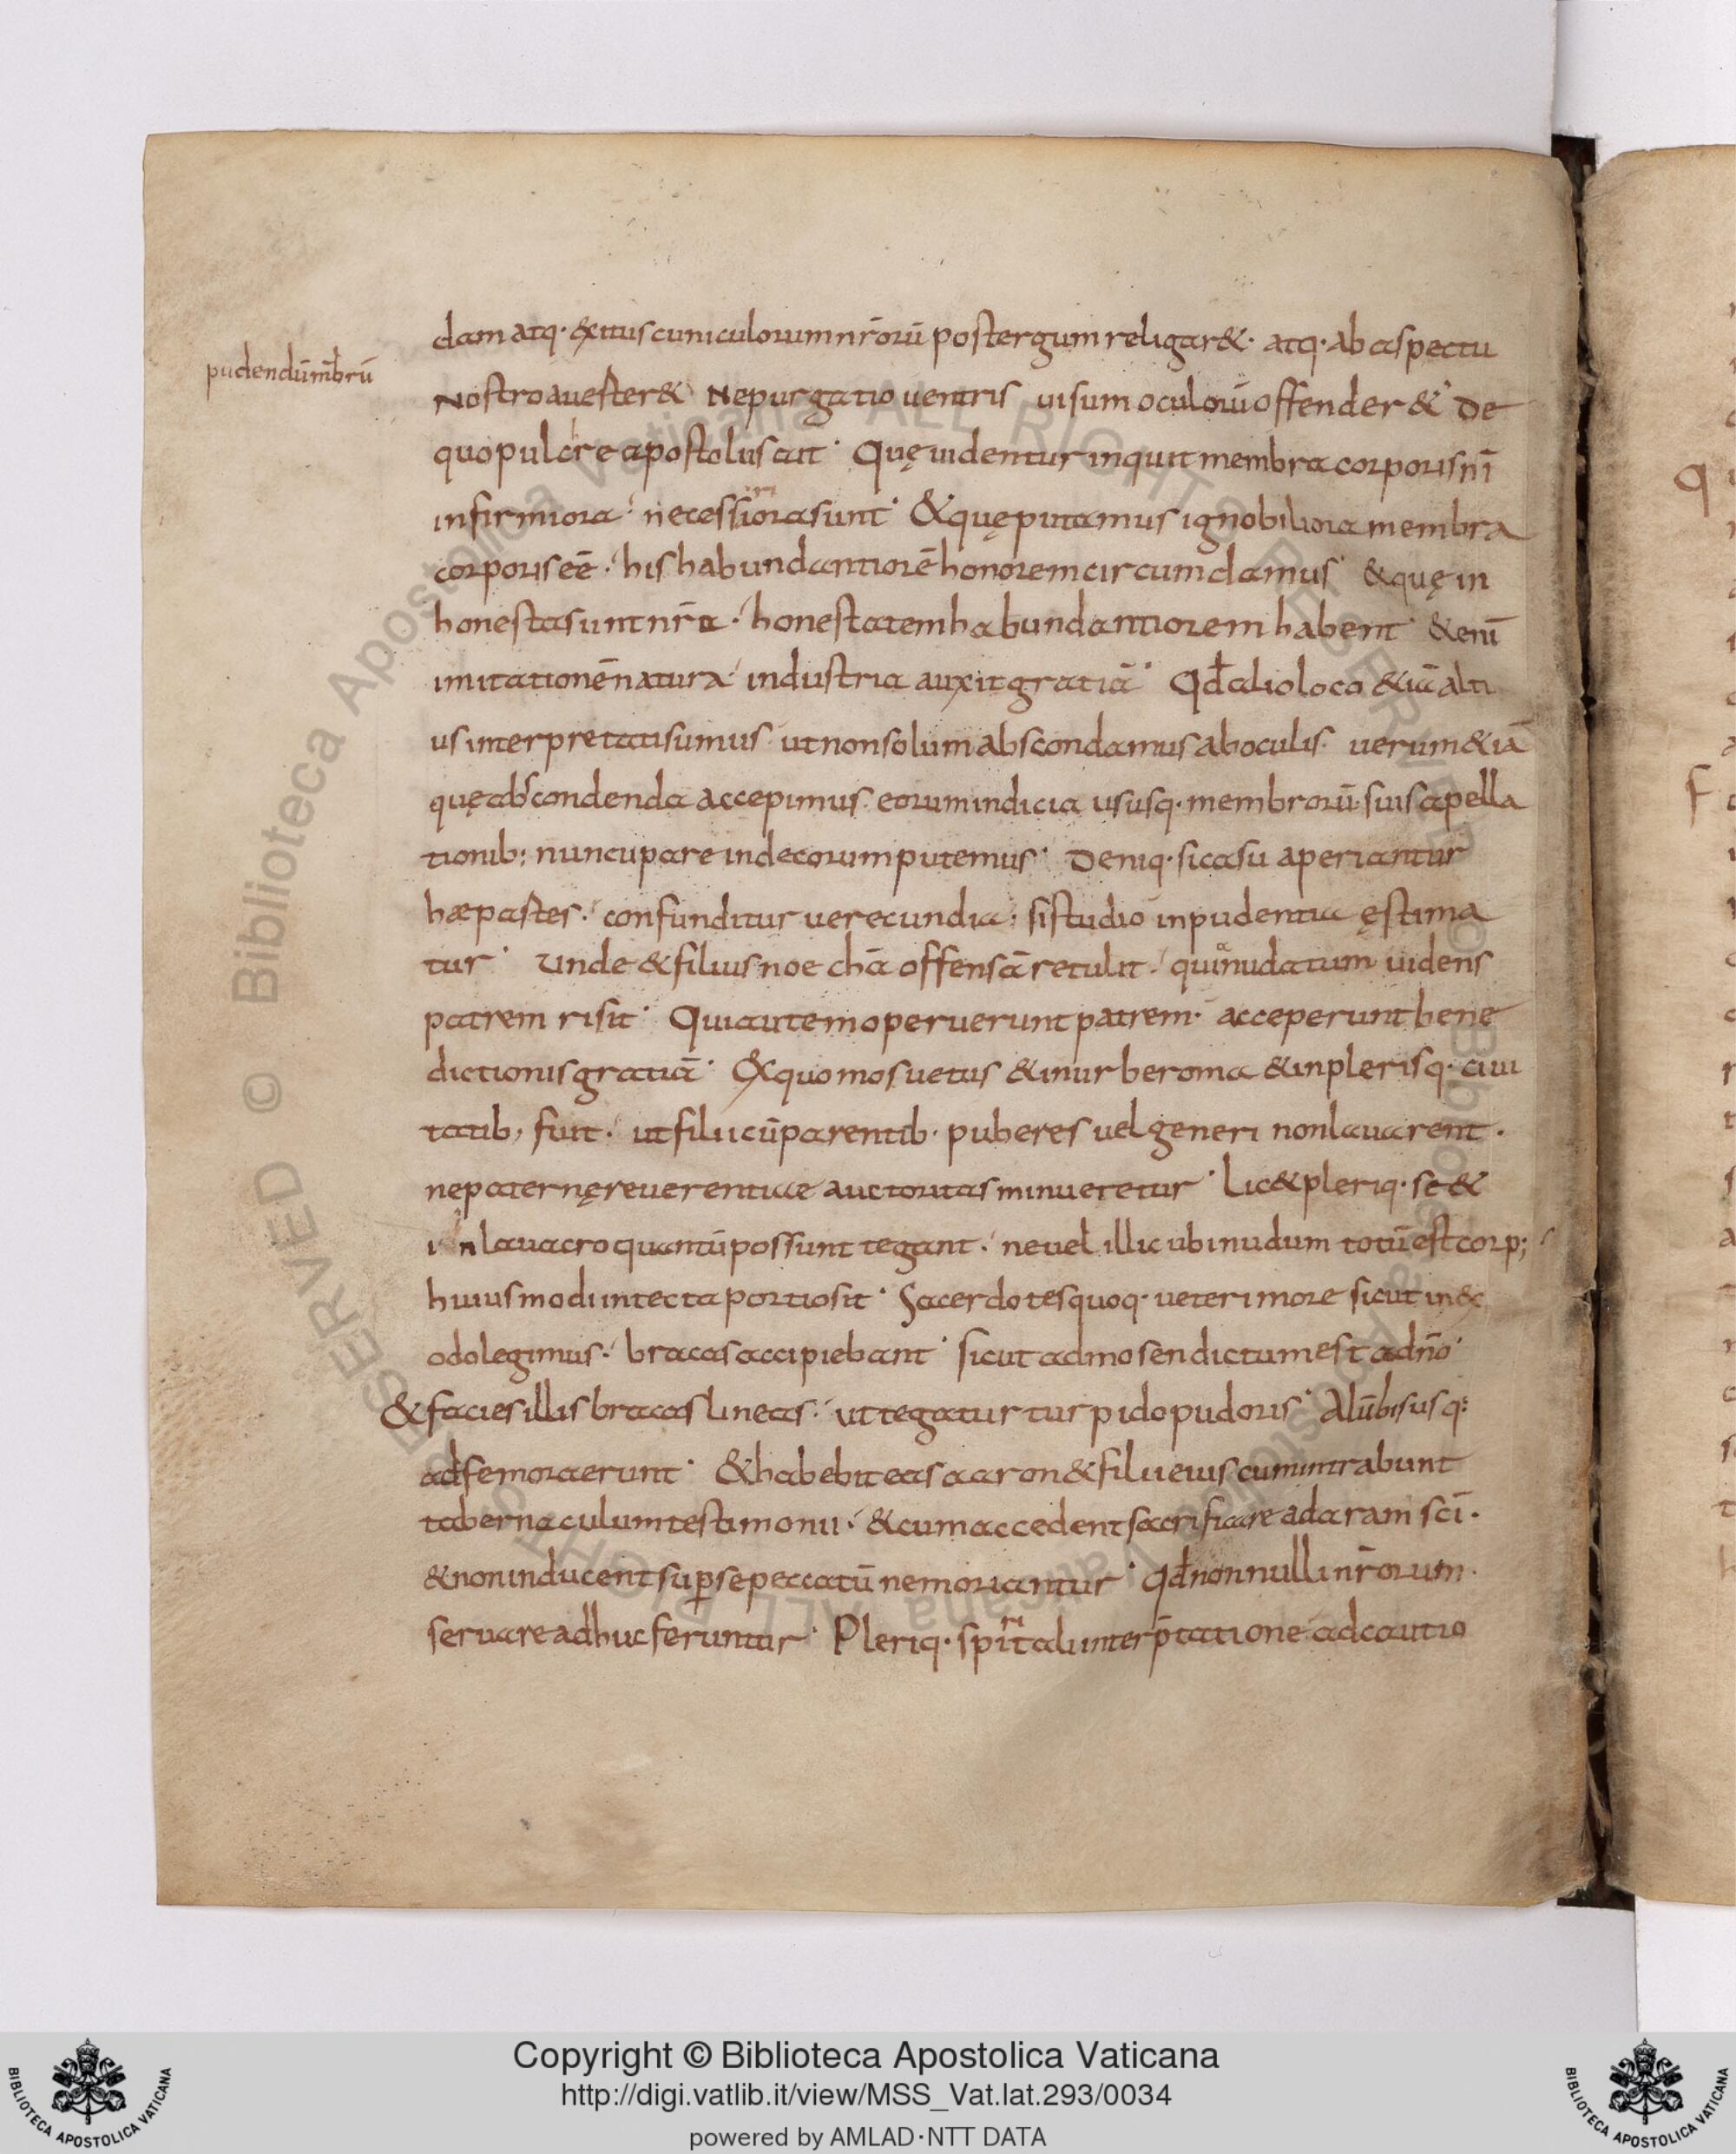 pudendū m̄brū
dam atq· exitus cuniculorum nr̄orū post tergum religar&· atq· ab aspectu
nostro auester& ne purgatio uentris uisum oculorū offender& de
quo pulcre apostolus ait· Quę uidentur inquit membra corporis nr̄i
infirmiora necessiora sunt· & quę putamus ignobiliora membra
corporis eē· his habundantiorē honorem circumdamus· & quę in
honesta sunt nr̄a· honestatem habundantiorem habent· &enī
imitationē natura industria auxit gratiā· Qđ alio loco &iā alti
us interpretati sumus ut non solum abscondamus ab oculis· uerum &iā
quę abscondenda accepimus eorum indicia ususq· membrorū suis apella
tionib: nuncupare indecorum putemus· Deniq· si casu aperiantur
hæ partes· confunditur uerecundia· si studio inpudentia ęstima
tur· Unde & filius noe chā offensā retulit· quia nudatum uidens
patrem risit· Qui autem operuerunt patrem· acceperunt bene
dictionis gratiā· Ex quo mos uetus & in urbe roma & in plerisq· ciui
tatib; fuit· ut filii cū parentib· puberes uel generi non lauarent·
ne paternę reuerentiae auctoritas minueretur· Lic& pleriq· se &
in lauacro quantū possunt tegant· ne uel illic ubi nudum totū est corp;
huiusmodi intecta portio sit· Sacerdotes quoq· ueteri more sicut in ex
odo legimus· bracas accipiebant· sicut ad mosen dictum est a dn̄o·
& facies illis bracas lineas· ut tegatur turpido pudoris· A lūbis usq:
ad femora erunt· & habebit eas aaron & filii eius cum intrabunt
tabernaculum testimonii· & cum accedent sacrificare ad aram sc̄i·
& non inducent sup se peccatū ne moriantur· qđ nonnulli nr̄orum·
seruare adhuc feruntur· Pleriq· spiritali interp̄tatione ad cautio
Copyright © Biblioteca Apostolica Vaticana
http://digi.vatlib.it/view/MSS_Vat.lat.293/0034
powered by AMLAD·NTT DATA